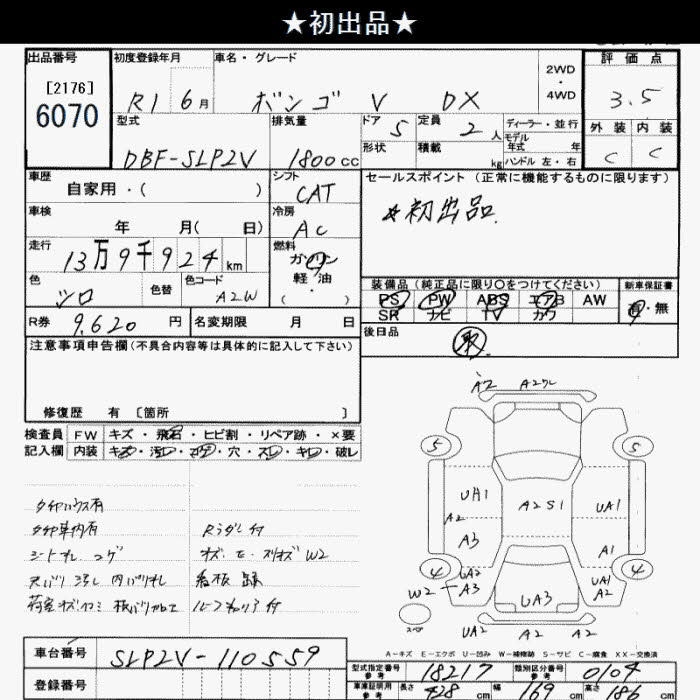 ★初出品★
出品番号 初度登録年月 車名・グレード 2WD ・ 4WD 評価点
[2176]
6070
R1 6月 ボンゴ V DX 3.5
型式 排気量 ドア 定員 ディーラー・並行 外装 内装
DBF-SLP2V 1800cc 5 2人 モデル年式 年 C C
形状 積載 kg ハンドル 左・右
車歴 シフト セールスポイント (正常に機能するものに限ります)
自家用・( ) CAT ☆初出品.
車検 冷房
年 月( 日) AC
走行 燃料
13万9千924km ガソリン・軽油
( )
色 色替 色コード 装備品 (純正品に限り〇をつけてください) 新車保証書
シロ A2W PS PW ABS エアB AW 有・無
R券 9,620円 名変期限 月 日 SR ナビ TV カワ
注意事項申告欄(不具合内容等は具体的に記入して下さい) 後日品
取
修復歴 有 〔箇所 〕
検査員 FW キズ・飛石・ヒビ割・リペア跡・×要
記入欄 内装 キズ・汚レ・コゲ・穴・スレ・キレ・破レ
A2 A2ワレ
5 5
UA1 A2S1 UA1
A2
A3 A1
4 UA2 UA1 4
W2 A3 UA3 A2
スペア
UA2 A2 A2
タイヤハウス有
タイヤ車内有 Rラダー付
シートスレ コゲ W2
A-キズ E-エクボ U-凹み W-補修跡 S-サビ C-腐食 XX-交換済
車台番号 SLP2V-110559
登録番号
型式指定番号 参考 18217 類別区分番号 参考 0104
車庫証明用 参考 長さ 428cm 幅 169cm 高さ 186cm